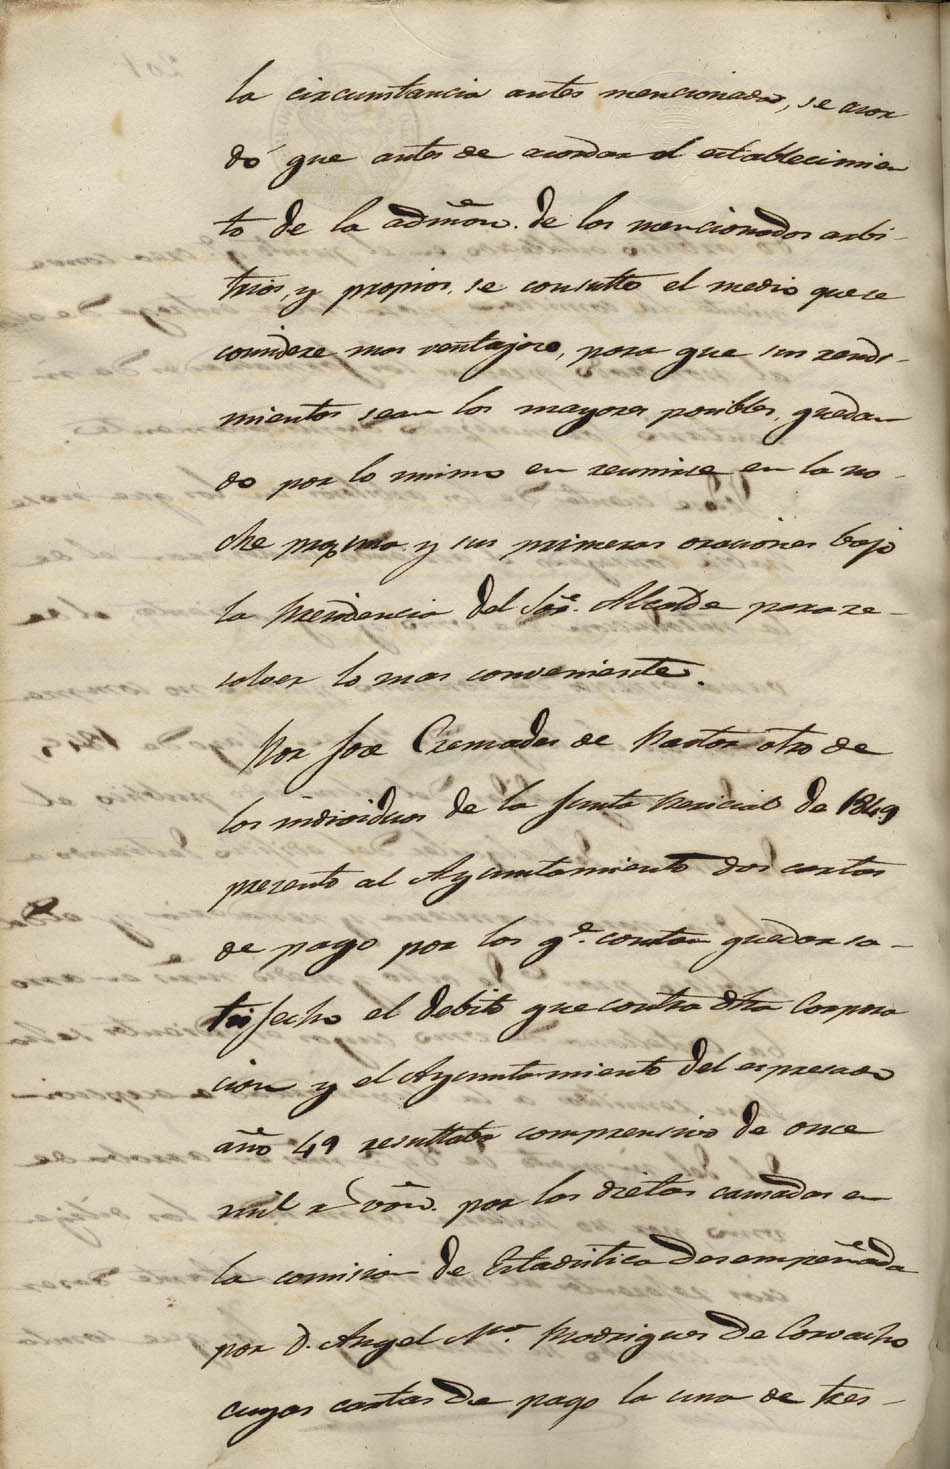 la circumstancia antes mencionada, se acor
dó que antes de acordar el establecimien
to de la admõn. de los mencionados arbi-
trios, y propios, se consulte el medio que se
considere mas ventajoso, para que sus rendi-
mientos sean los mayores posibles, quedan
do por lo mismo en reunirse en la no-
che proxima y sus primeras oraciones bajo
la Presidencia del Sor. Alcalde para re-
solver lo mas conveniente.
Por Jose Cremades de Pastor otro de
los individuos de la Junta Pericial de 1849
presento al Ayuntamiento dos cartas
de pago por las qe. constan quedar sa-
tisfecho el debito que contra dha Corpora
cion y el Ayuntamiento del espresado
año 49 resultaba comprensivo de once
mil r von. por las dietas causadas en
la comision de Estadistica desempeñada
por D. Angel Ma. Rodrigues de Corvacho
cuyas cartas de pago la una de tres-